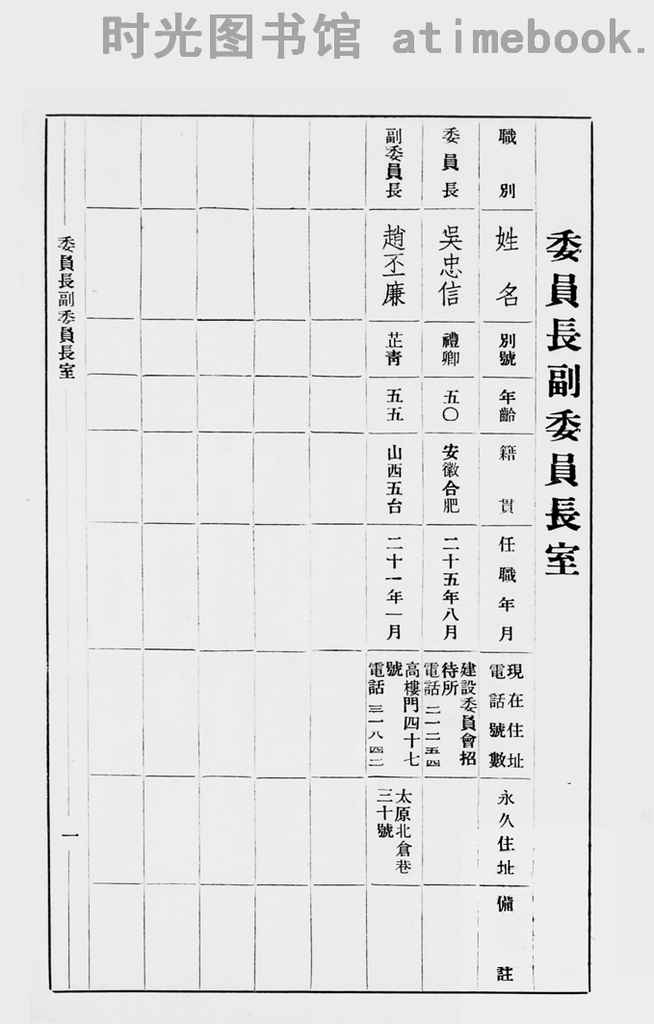 时光图书馆 atimebook.
委員長副委員長室
職別
姓名
別號
年齡
籍貫
任職年月
現在住址
電話號數
永久住址
備註
委員長
吳忠信
禮卿
五〇
安徽合肥
二十五年八月
建設委員會招
待所
電話 二一二五四
副委員長
趙丕廉
芷青
五五
山西五台
二十一年一月
高樓門四十七
號
電話 三一八四二
太原北倉巷
三十號
委員長副委員長室
一